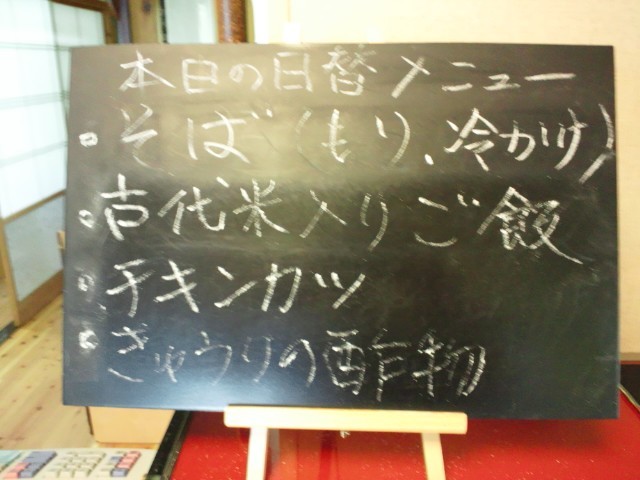 本日の日替メニュー
。そば(もり、冷かけ)
。古代米入りご飯
。チキンカツ
。きゅうりの酢物